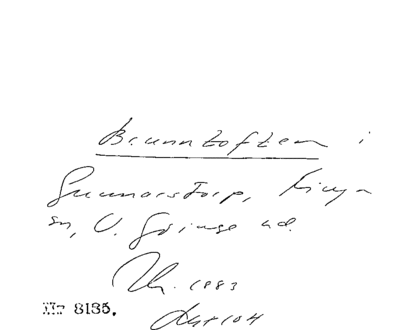 Brunntoften i
Gunnarstorp, Kinya
sn, V. Göinge hd.
1983
Nr 8135.